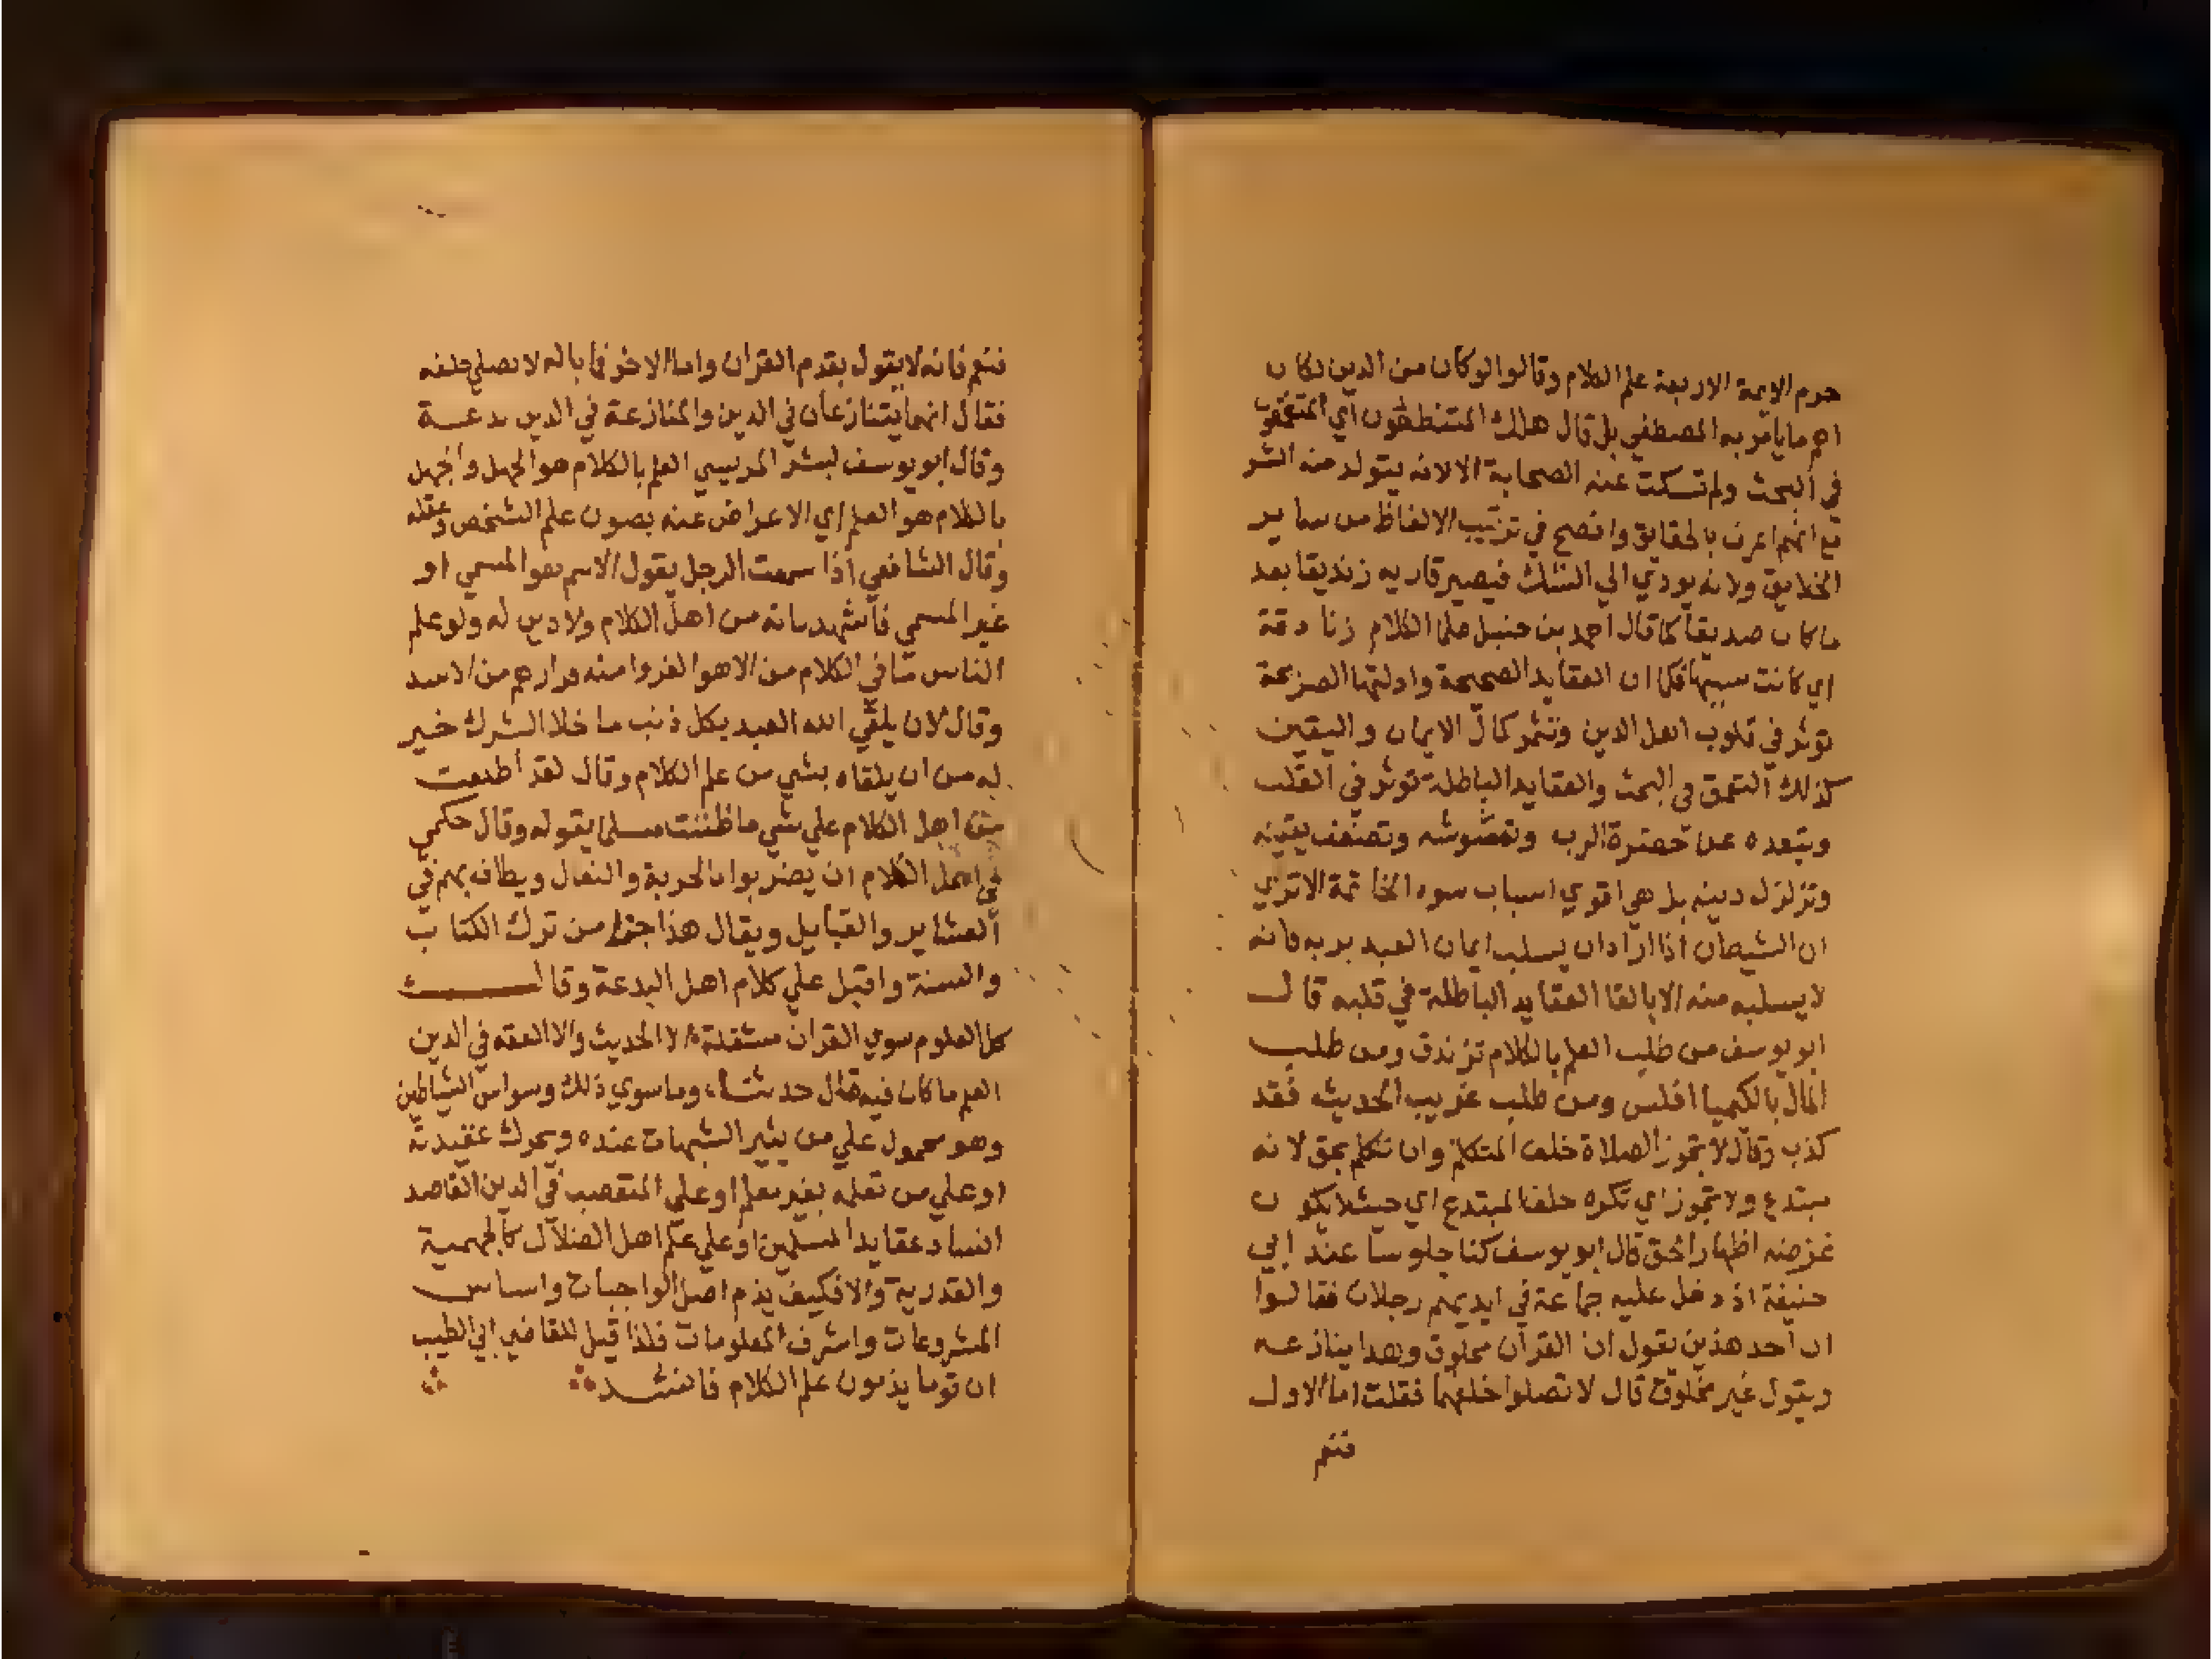 حرم الايمة الاربعة علم الكلام وقالوا لو كان من الدين لكان
اهم ما يامر به المصطفي بل قال هلك المتنطعون اي المتعمقون
في البحث ولم تسكت عنه الصحابة الا لانه يتولد منه الشر
مع انهم اعرف بالحقايق وافصح في ترتيب الالفاظ من ساير
الخلايق ولانه يودي الي الشك فيصير قاريه زنديقا بعد
ما كان صديقا كما قال احمد بن حنبل علما الكلام زنادقة
اي كانت سببها فكما ان العقايد الصحيحة وادلتها الصريحة
توثر في قلوب اهل الدين وتثمر كمال الايمان واليقين
كذلك التعمق في البحث والعقايد الباطلة توثر في القلب
وتبعده عن حضرة الرب وتشوشه وتضعف يقينه
وتزلزل دينه بل هي اقوي اسباب سوء الخاتمة الا تري
ان الشيطان اذا اراد ان يسلب ايمان العبد بربه فانه
لا يسلبه منه الا بالقا العقايد الباطلة في قلبه قال
ابو يوسف من طلب العلم بالكلام تزندق ومن طلب
المال بالكيميا افلس ومن طلب غريب الحديث فقد
كذب وقال لا تجوز الصلاة خلف المتكلم وان تكلم بحق لانه
مبتدع ولا تجوز اي تكره خلف المبتدع اي حيث لا يكون
غرضه اظهار الحق قال ابو يوسف كنا جلوسا عند ابي
حنيفة اذ دخل عليه جماعة في ايديهم رجلان فقالوا
ان احد هذين يقول ان القران مخلوق وهذا ينازعه
ويقول غير مخلوق قال لا تصلوا خلفهما فقلت اما الاول
فنعم
فنعم فانه لا يقول بقدم القران واما الاخر فما باله لا نصلي خلفه
فقال انهما يتنازعان في الدين والمنازعة في الدين بدعة
وقال ابو يوسف لبشر المريسي العلم بالكلام هو الجهل والجهل
بالكلام هو العلم اي الاعراض عنه يصون علم الشخص وعقله
وقال الشافعي اذا سمعت الرجل يقول الاسم هو المسمي او
غير المسمي فاشهد بانه من اهل الكلام ولا دين له ولو علم
الناس ما في الكلام من الاهوا لفروا منه فرارهم من الاسد
وقال لان يلقي الله العبد بكل ذنب ما خلا الشرك خير
له من ان يلقاه بشي من علم الكلام وقال لقد اطلعت
من اهل الكلام علي شي ما ظننت مسلما يقوله وقال حكمي
في اهل الكلام ان يضربوا بالجريد والنعال ويطاف بهم في
العشاير والقبايل ويقال هذا جزا من ترك الكتاب
والسنة واقبل علي كلام اهل البدعة وقال
كل العلوم سوي القران مشغلة الا الحديث والا الفقه في الدين
العلم ما كان فيه قال حدثنا وما سوي ذلك وسواس الشياطين
وهو محمول علي من يثير الشبهات عنده ويحرك عقيدته
او علي من تعلمه بغير معلم او علي المتعصب في الدين القاصد
افساد عقايد المسلمين او علي علم اهل الضلال كالجهمية
والقدرية والا فكيف يذم اصل الواجبات واساس
المشروعات واشرف المعلومات فلذا قيل للقاضي ابي الطيب
ان قوما يذمون علم الكلام فانشد